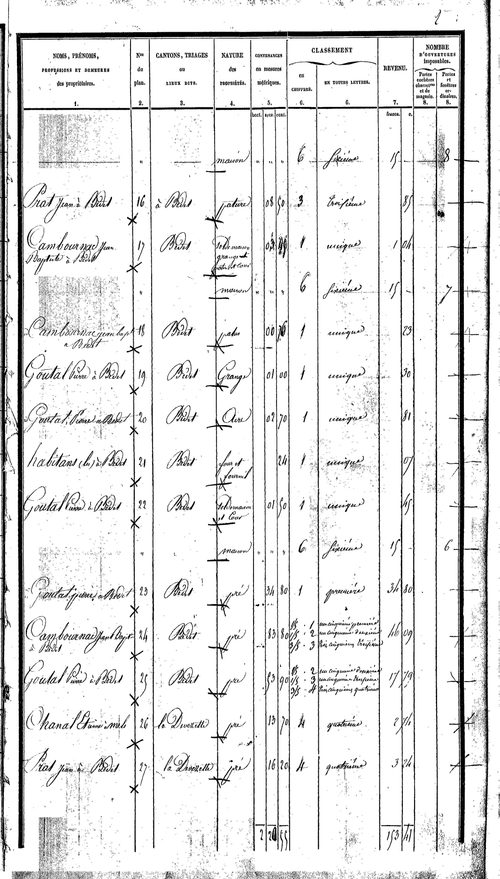 2
NOMS, PRÉNOMS, PROFESSIONS ET DEMEURES des propriétaires. 1.
Nos du plan. 2.
CANTONS, TRIAGES ou LIEUX DITS. 3.
NATURE des PROPRIÉTÉS. 4.
CONTENANCES en mesures métriques. 5. hect. ares cent.
CLASSEMENT
en CHIFFRES. 6.
EN TOUTES LETTRES. 6.
REVENU. 7. francs. c.
NOMBRE D'OUVERTURES imposables.
Portes cochères charretères et de magasin. 8.
Portes et fenêtres ordinaires. 8.
" maison " " " 6 sixième 15 " 8
Prat Jean à Bédet 16 à Bédet pature 08 50 3 troisième 85
Cambournac Jean Baptiste à Bédet 17 Bédet sol de maison grange et 1 unique 1 04
" " maison " " " 6 sixième 15 " 7
Cambournac Jean Bapt à Bédet 18 Bédet patus 00 76 1 unique 23
Goutal Pierre à Bédet 19 Bédet Grange 01 00 1 unique 30
Goutal Pierre à Bédet 20 Bédet Aire 02 70 1 unique 81
habitans (les) à Bédet 21 Bédet four et fournil 24 1 unique 07
Goutal Pierre à Bédet 22 Bédet sol de maison et Cour 01 50 1 unique 45
" " maison " " " 6 sixième 15 " 6
Goutal pierre à Bédet 23 Bédet pré 34 80 1 première 34 80
Cambournac Jean Bapt à Bédet 24 Bédet pré 83 80 1/5 1 un cinquième première 46 09
1/5 2 un cinquième deuxième
3/5 3 trois cinquièmes troisième
Goutal Pierre à Bédet 25 Bédet pré 53 90 1/5 2 un cinquième deuxième 17 79
1/5 3 un cinquième troisième
3/5 4 trois cinquièmes quatrième
Chanal Etienne 26 la Devezette pré 13 70 4 quatrième 2 74
Prat Jean à Bédet 27 la Devezette pré 16 20 4 quatrième 3 24
2 20 55 153 41